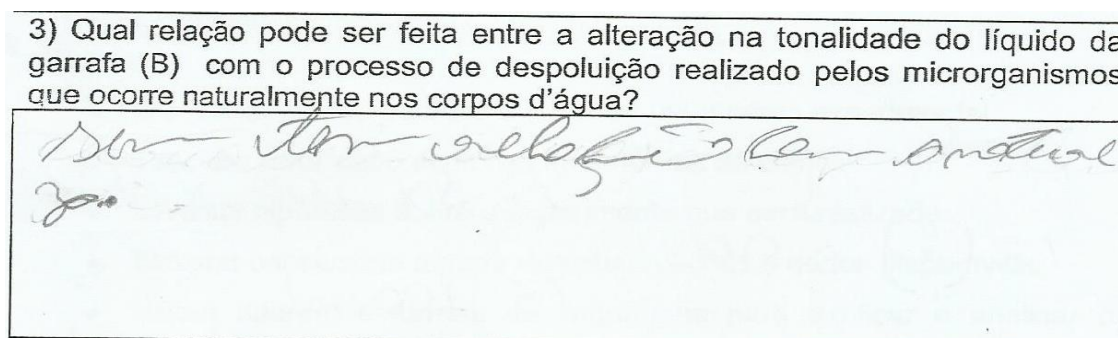 3) Qual relação pode ser feita entre a alteração na tonalidade do líquido da
garrafa (B) com o processo de despoluição realizado pelos microrganismos
que ocorre naturalmente nos corpos d'água?
tem relação com a nature